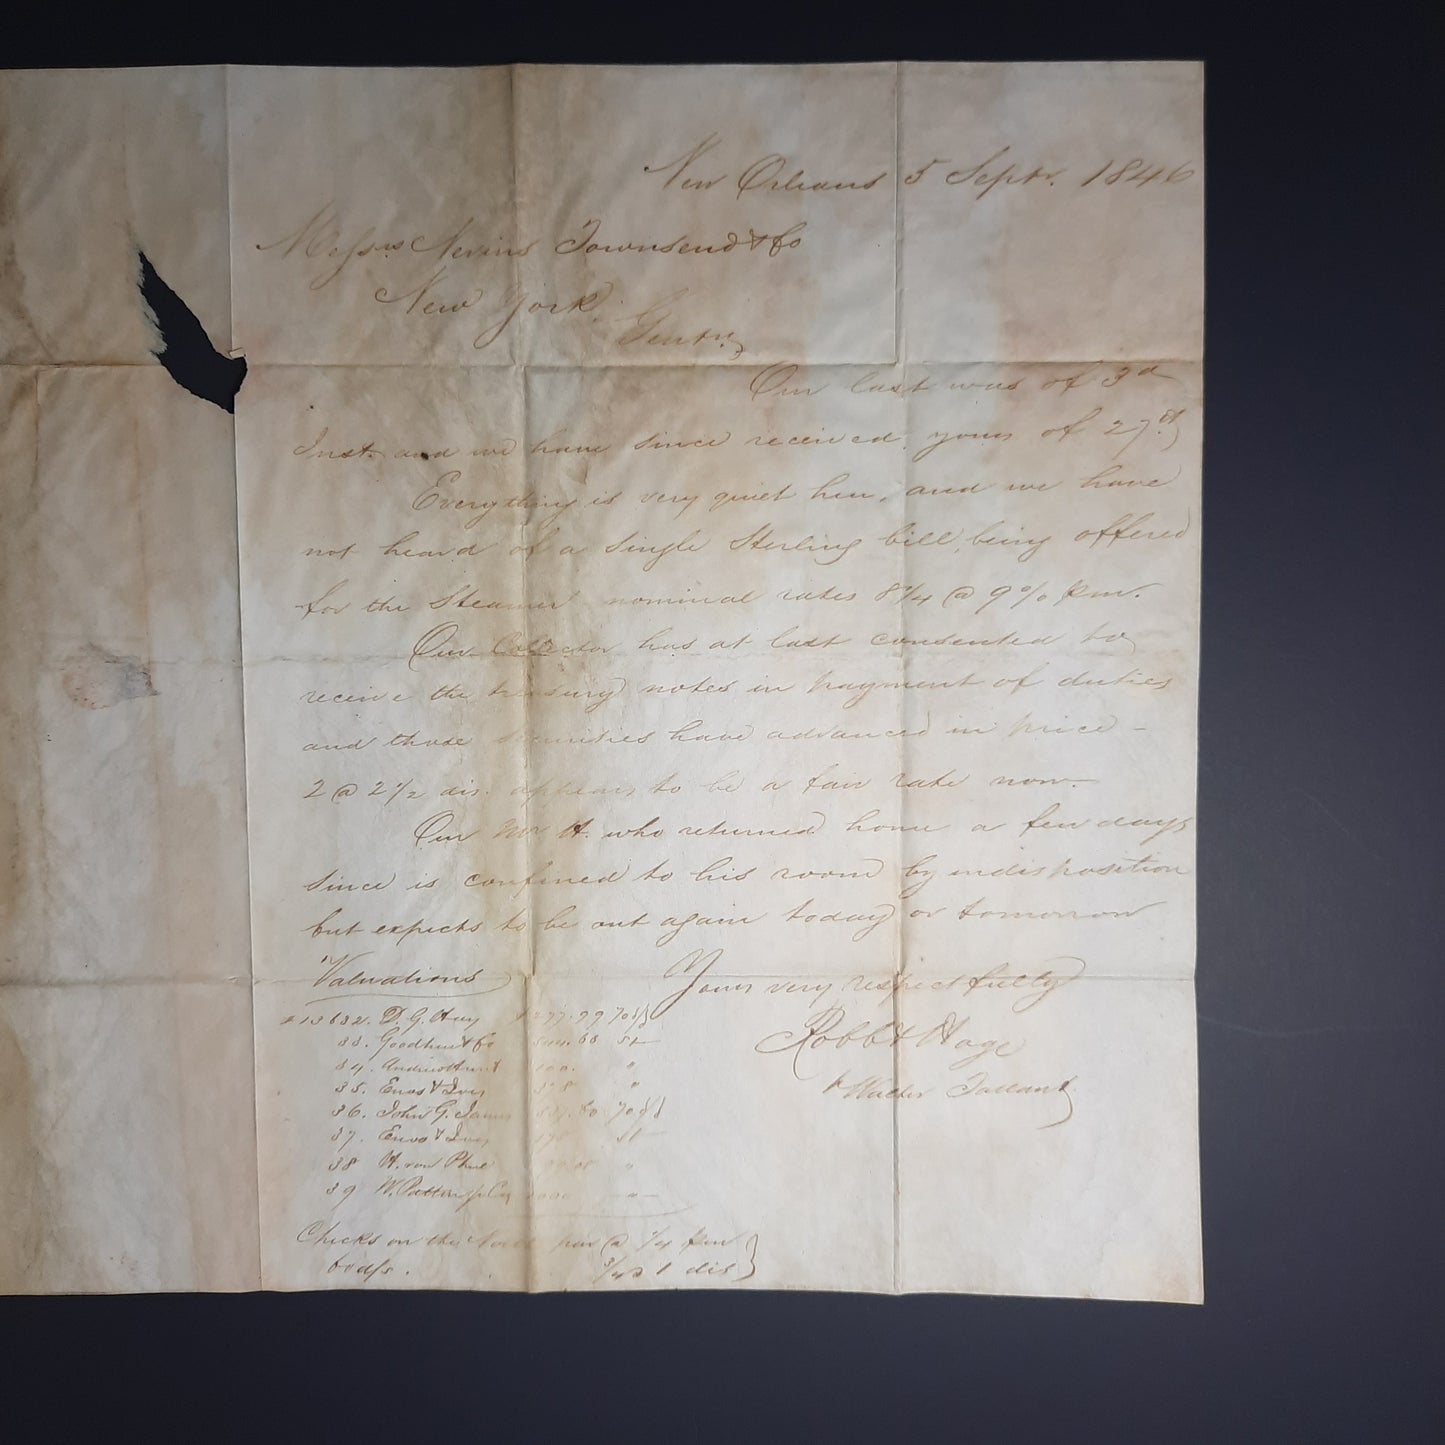 New Orleans 5 Septr. 1846
Messrs Nevins Townsend & Co
New York.
Gentn.
Our last was of 3d
Inst. and we have since received yours of 27th.
Everything is very quiet here, and we have
not heard of a single Sterling bill being offered
for the Steamer nominal rates 8 3/4 @ 9 % prm.
Our Collector has at last consented to
receive the treasury notes in payment of duties
and those securities have advanced in price -
2 @ 2 1/2 dis. appears to be a fair rate now.
Our Mr H. who returned home a few days
since is confined to his room by indisposition
but expects to be out again today or tomorrow
Yours very respectfully
Robb & Hoge
Walter Tallant
Valuations
13632. D. G.
33. Goodhue & Co
34.
35. Enos & Ives
36. John G. James
37. Enos & Ives
38
39 W.
Checks on the North par @ 1/4 prm
60 d/s. 3/4 @ 1 dis